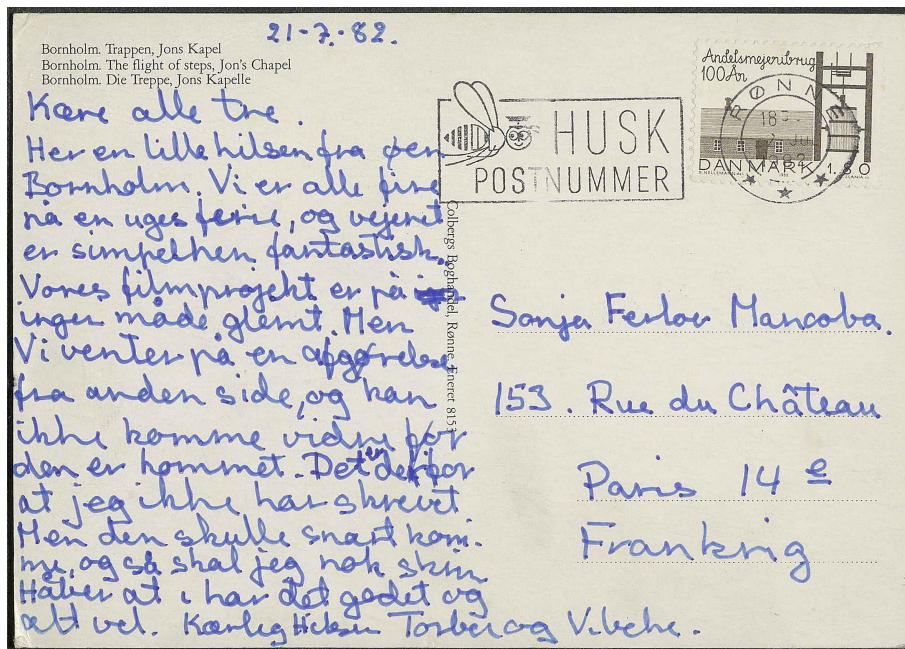 21-7.-82.
Bornholm. Trappen, Jons Kapel
Bornholm. The flight of steps, Jon's Chapel
Bornholm. Die Treppe, Jons Kapelle
Kære alle tre.
Her en lille hilsen fra øen
Bornholm. Vi er alle fire
på en uges ferie, og vejret
er simpelhen fantastisk.
Vores filmprojekt er på
ingen måde glemt. Men
Vi venter på en afgørelse
fra anden side, og kan
ikke komme vidre før
den er kommet. Det er derfor
at jeg ikke har skrevet
Men den skulle snart kom-
me, og så skal jeg nok skriv
Håber at i har det godet og
alt vel. Kærlig Hilsen Torben og Vibeke.
Colbergs Boghandel, Rønne, Eneret 8153
HUSK
POSTNUMMER
Andelsmejeribrug
100 År
DANMARK 1.80
RØNNE
Sonja Ferlov Mancoba.
153. Rue du Château
Paris 14 e
Frankrig